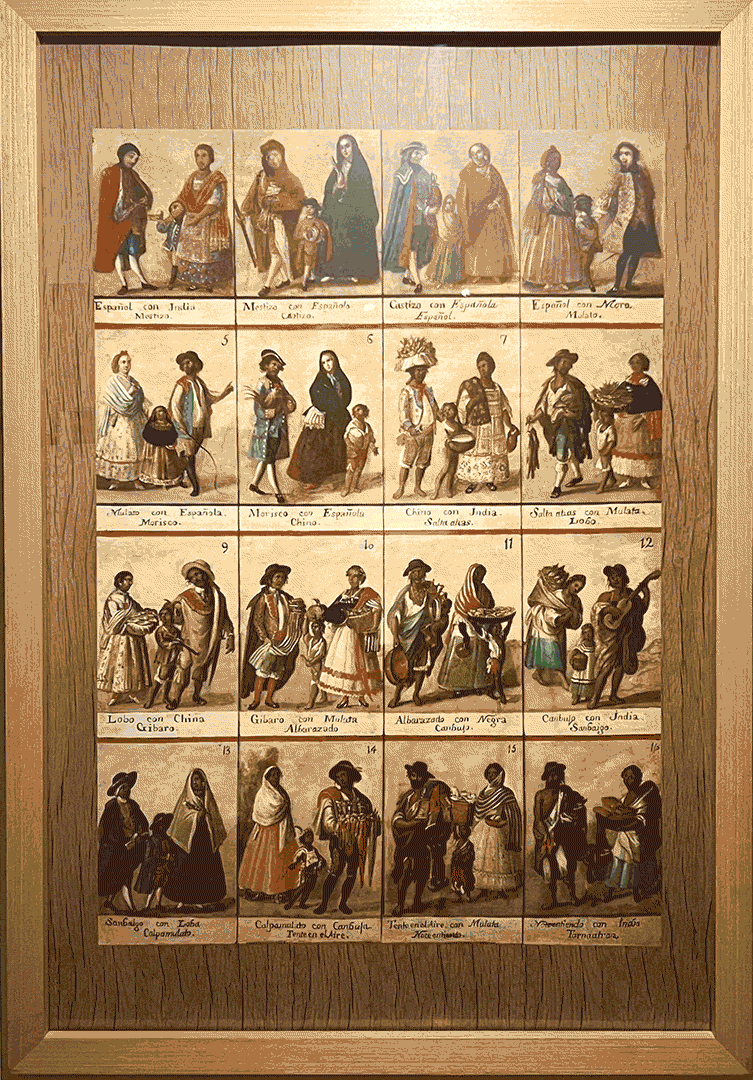 Español con India
Mestizo.
Mestizo con Española
Castizo.
Castizo con Española
Español.
Español con Mora
Mulato.
5
Mulato con Española.
Morisco.
6
Morisco con Española
Chino.
7
Chino con India.
Salta atias.
8
Salta atias con Mulata
Lobo.
9
Lobo con China
Gibaro.
10
Gibaro con Mulata
Albarazado
11
Albarazado con Negra
Canbujo
12
Canbujo con India
Sanbaigo.
13
Sanbaigo con Loba
Calpamulato.
14
Calpamulato con Canbuja
Tente en el Aire.
15
Tente en el Aire, con Mulata
Noteentiendo.
16
Noteentiendo con India
Tornaatras